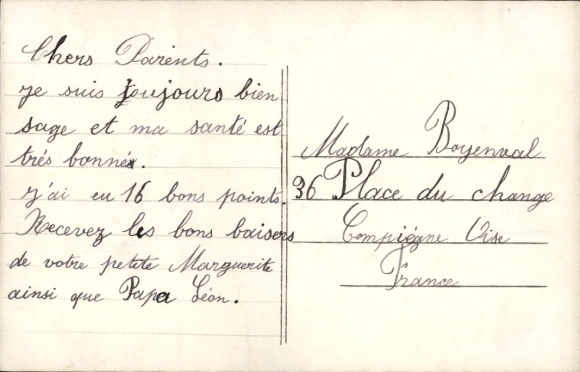 Chers Parents.
Je suis toujours bien
sage et ma santé est
trés bonne.
J'ai eu 16 bons points.
Recevez les bons baisers
de votre petite Marguerite
ainsi que Papa Léon.
Madame Boyenval
36 Place du change
Compiégne Oise
France